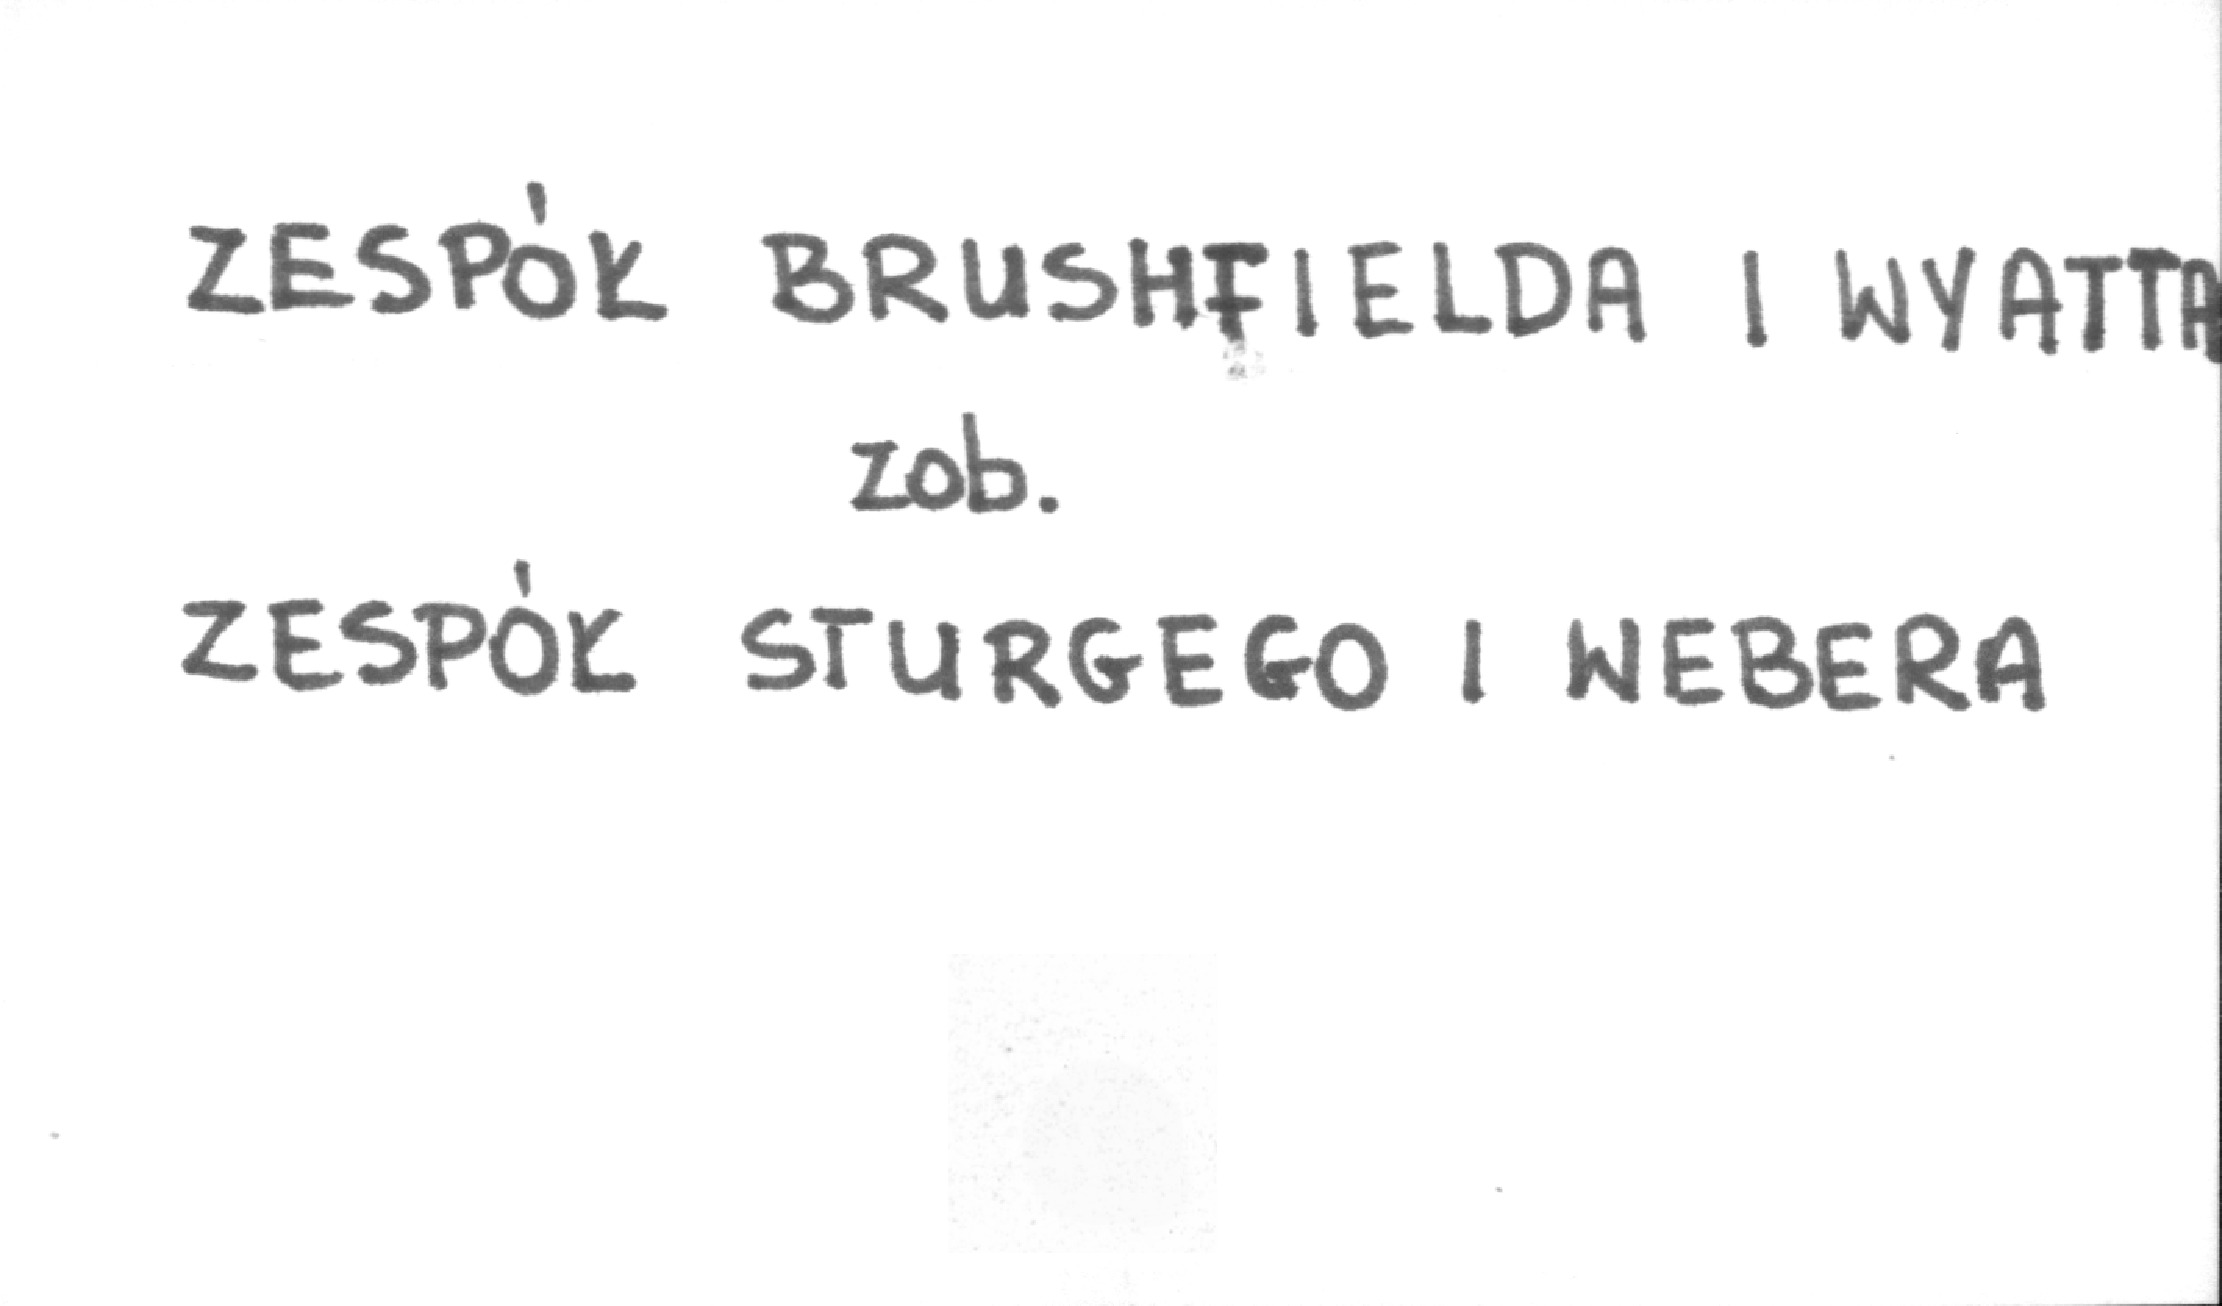 ZESPÓŁ BRUSHFIELDA I WYATTA
zob.
ZESPÓŁ STURGEGO I WEBERA